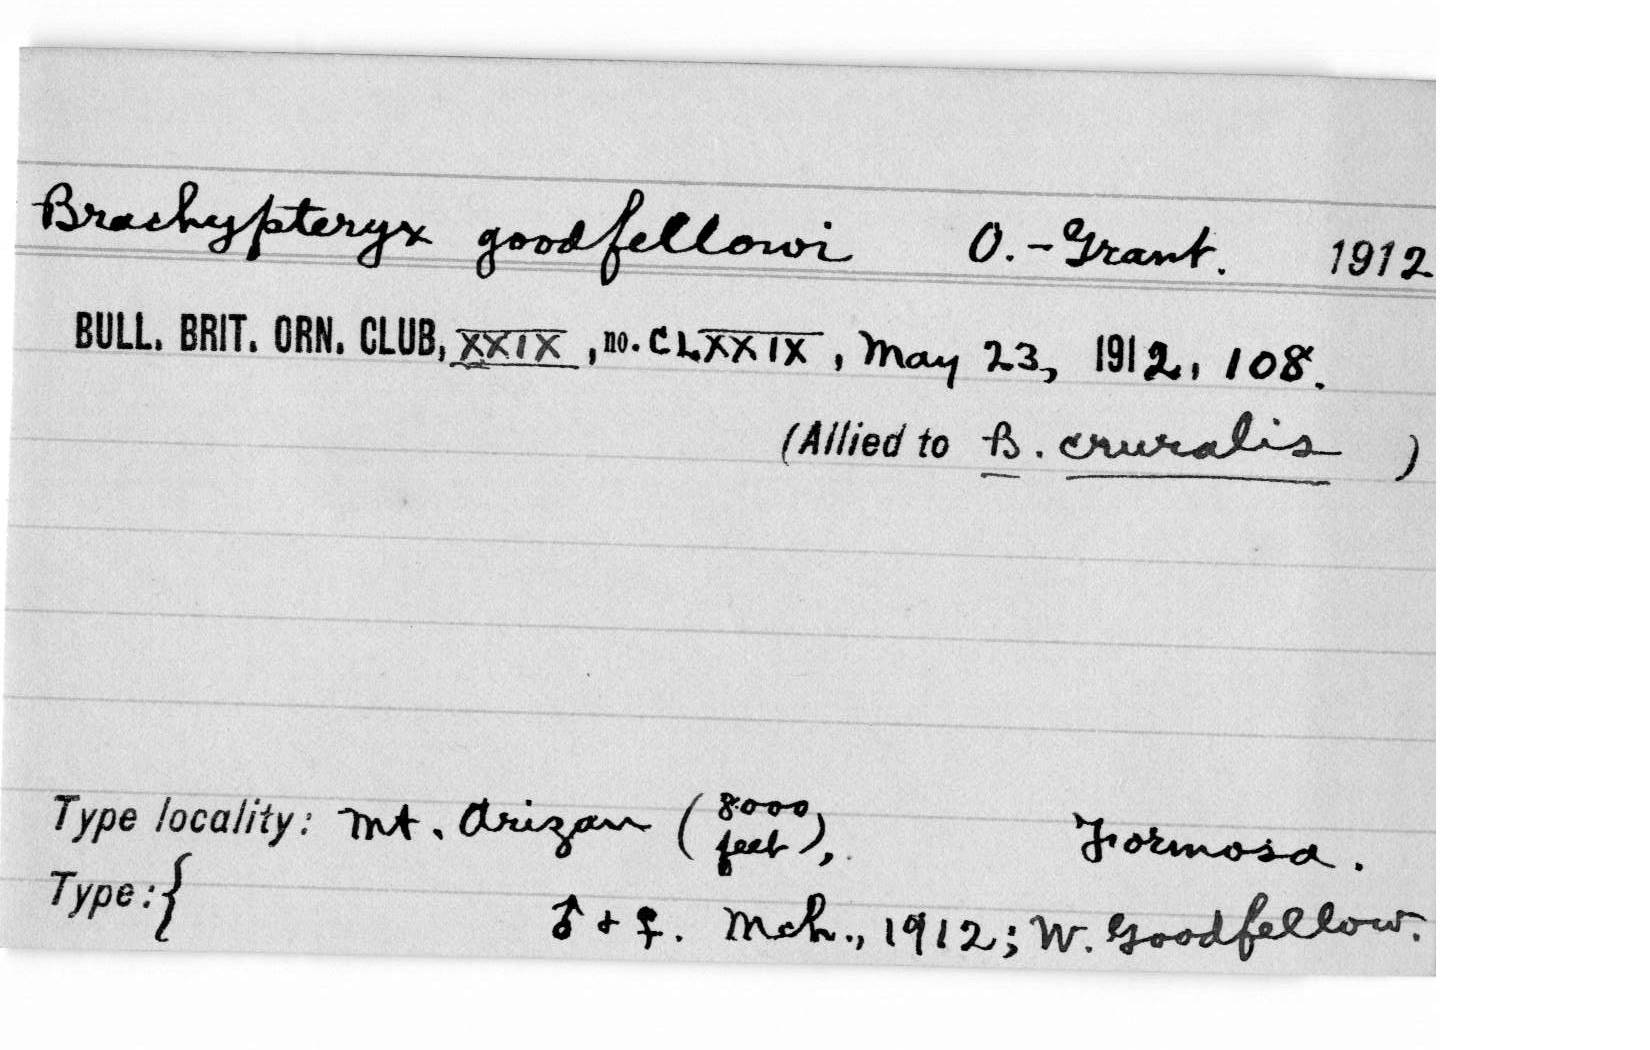 Brachypteryx goodfellowi O.-Grant. 1912
BULL. BRIT. ORN. CLUB, XXIX, no. CLXXIX, May 23, 1912, 108.
(Allied to B. cruralis )
Type locality: Mt. Arizan (8000 feet), Formosa.
Type:{ ♂ + ♀. Mch., 1912; W. Goodfellow.